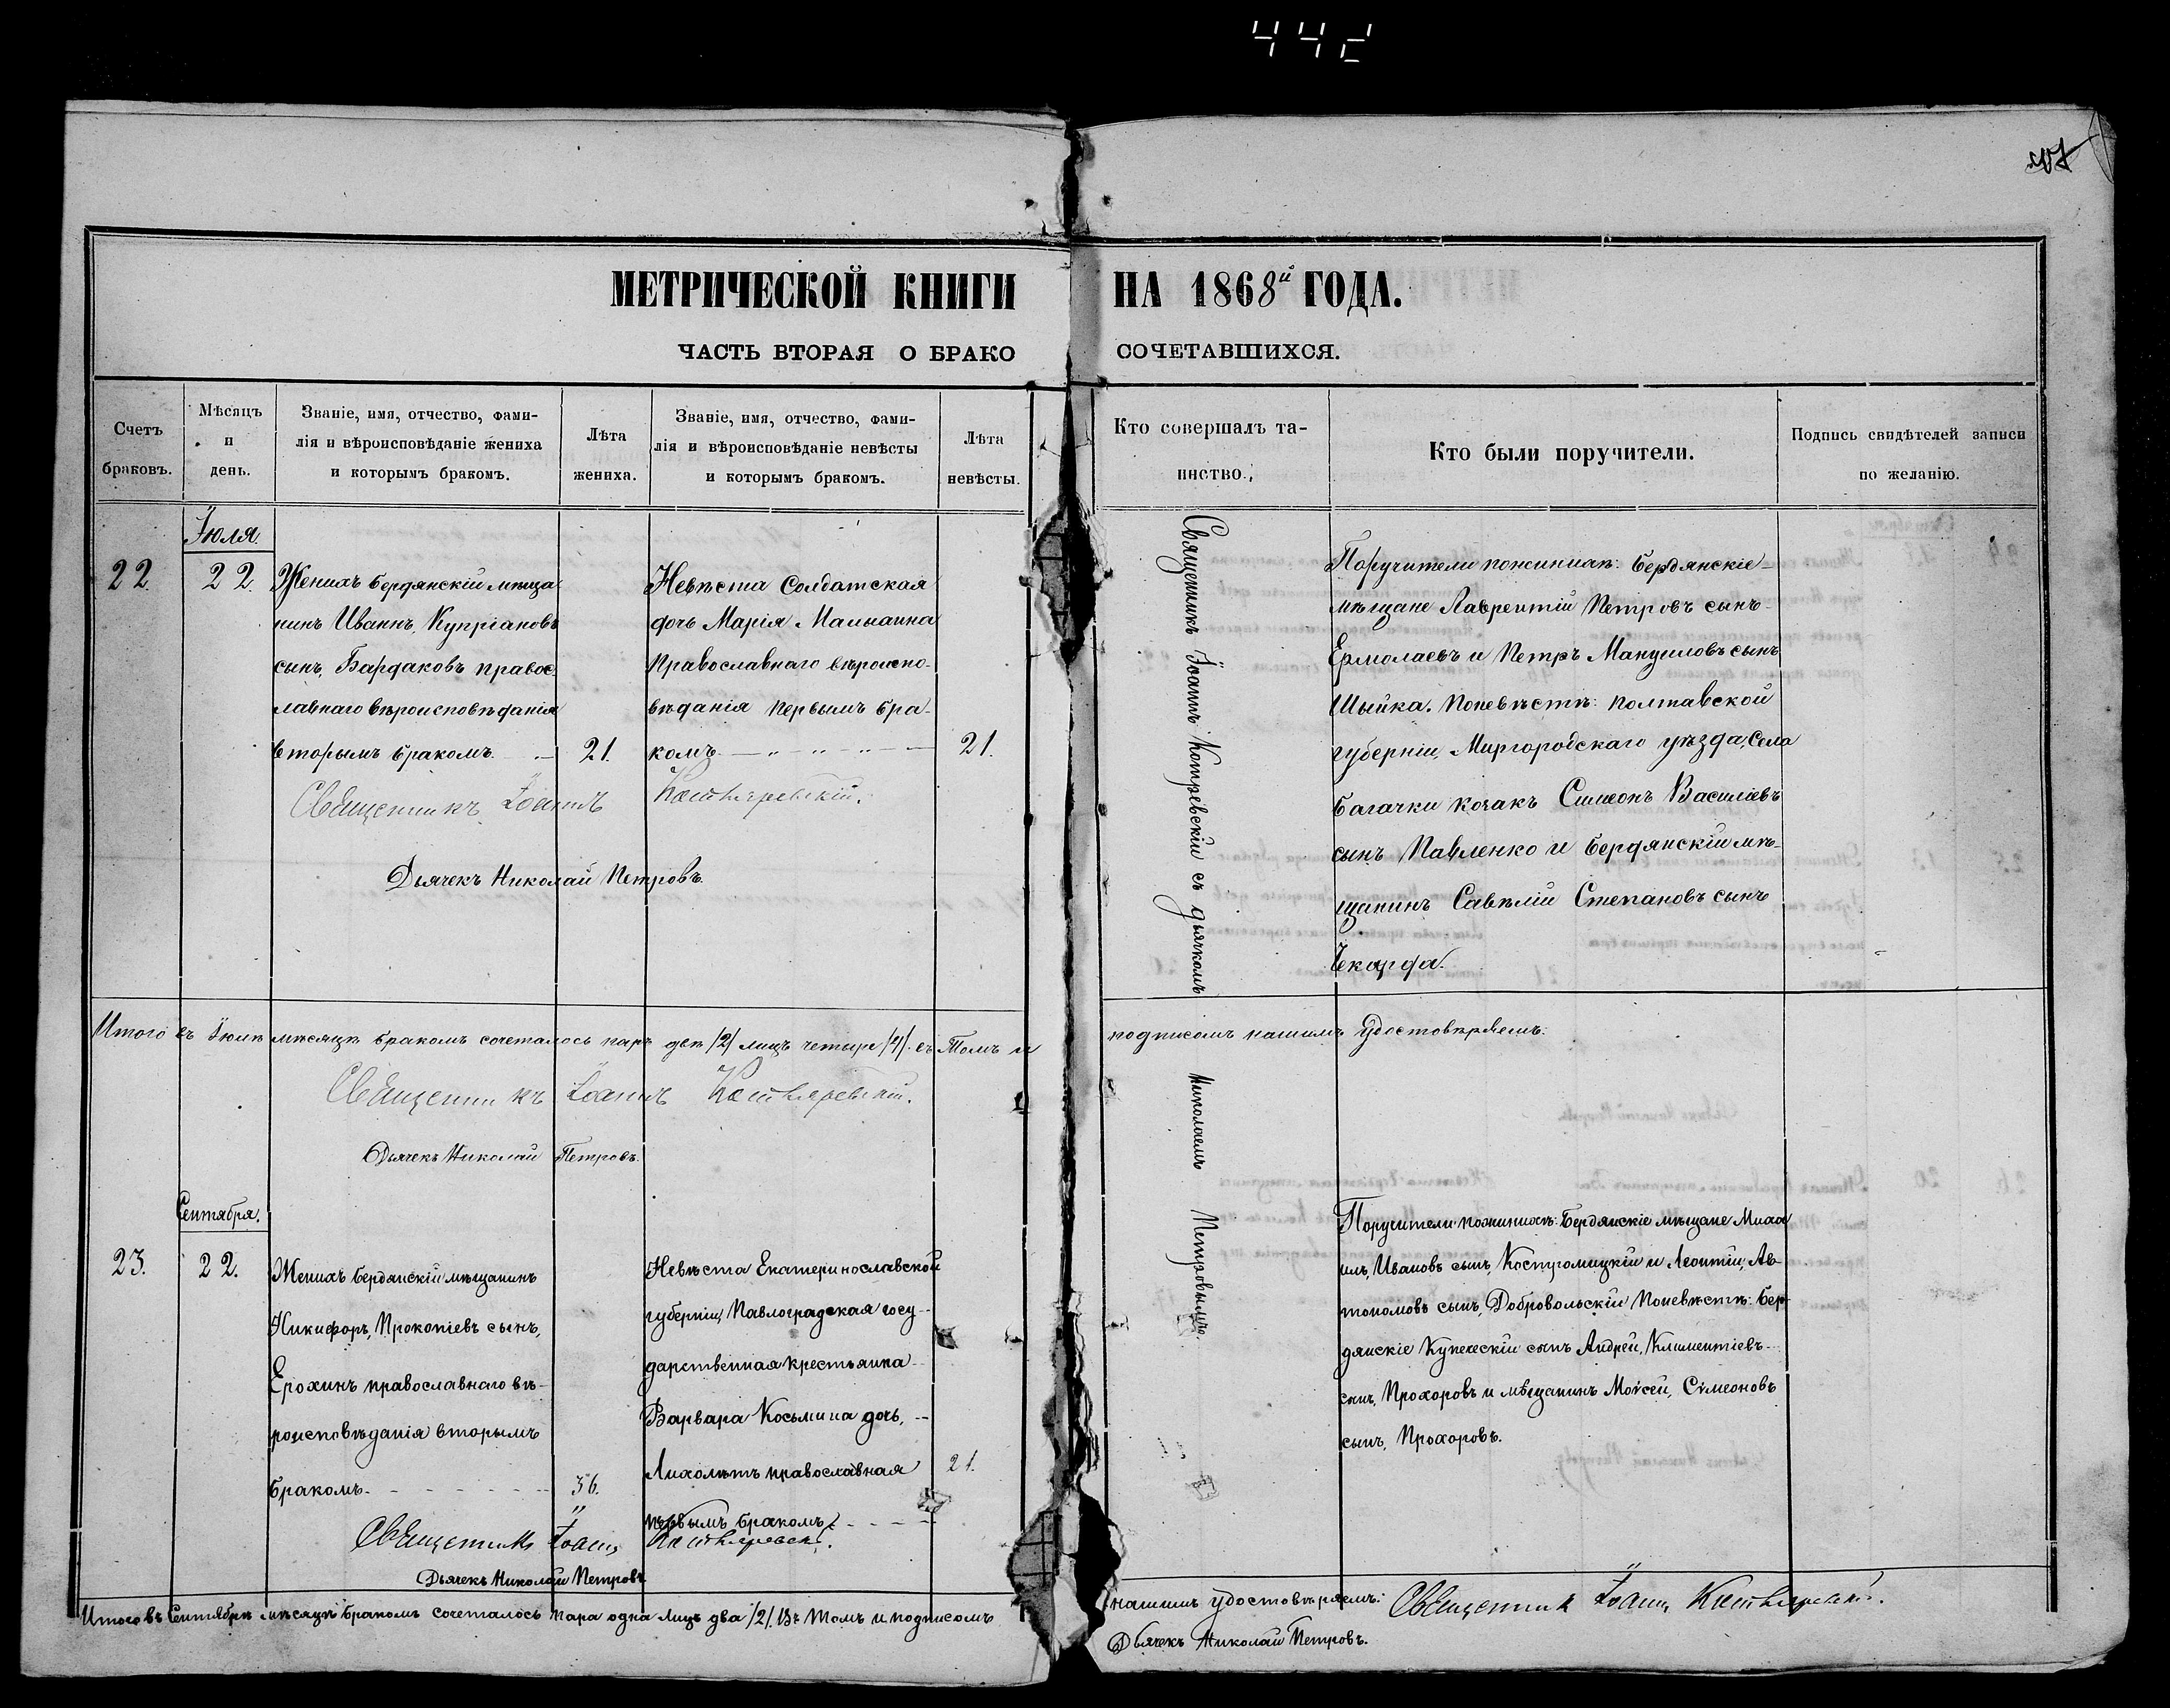 442
МЕТРИЧЕСКОЙ КНИГИ НА 1868й ГОДА.
ЧАСТЬ ВТОРАЯ О БРАКОСОЧЕТАВШИХСЯ.
Счетъ
браковъ.
Мѣсяцъ
и
день.
Званіе, имя, отчество, фами-
лія и вѣроисповѣданіе жениха
и которымъ бракомъ.
Лѣта
жениха.
Званіе, имя, отчество, фами-
лія и вѣроисповѣданіе невѣсты
и которымъ бракомъ.
Лѣта
невѣсты.
Кто совершалъ та-
инство.
Кто были поручители.
Подпись свидѣтелей записи
по желанію.
Іюля.
22. 22.
Женихъ Бердянскій мѣща
нинъ Иваннъ, Купріановъ
сынъ, Бардаковъ правос
лавнаго вѣроисповѣданія
вторымъ бракомъ. 21.
Невѣста Солдатская
дочь Марія
Православнаго вѣроиспо-
вѣданія первымъ бра-
комъ 21.
Священникъ Іоаннъ
Дьячекъ Николай Петровъ.
Священникъ Іоаннъ съ дьячкомъ
Николаемъ Петровымъ.
Поручители поженихѣ: Бердянскіе
мѣщане Лаврентій Петровъ сынъ
Ермолаевъ и Петръ Мануиловъ сынъ
Шыйка. Поневѣстѣ: Полтавской
губерніи, Миргородскаго уѣзда, Села
Багачки козакъ Симеонъ Василіевъ
сынъ Павленко и Бердянскій мѣ-
щанинъ Савѣлій Степановъ сынъ
Итого въ Іюлѣ мѣсяцѣ бракомъ сочеталось паръ двѣ /2/ лицъ четыре /4/. въ Томъ и подписомъ нашимъ удостовѣряемъ:
Священникъ Іоаннъ
Дьячекъ Николай Петровъ.
Сентября.
23. 22.
Женихъ Бердянскій мѣщанинъ
Никифоръ, Прокопіевъ сынъ,
Ерохинъ православнаго вѣ-
роисповѣданія вторымъ
бракомъ. 36.
Невѣста Екатеринославской
губерніи, Павлоградская госу-
дарственная крестьянка
Варвара Косьмина дочь,
Лихолѣтъ православная 21.
первымъ бракомъ.
Священникъ Іоаннъ
Дьячекъ Николай Петровъ
Поручители поженихѣ: Бердянскіе мѣщане Миха
илъ, Ивановъ сынъ, и Леонтій, Ав-
тономовъ сынъ, Добровольскій Поневѣстѣ: Бер-
дянскіе Купеческій сынъ Андрей, Климентіевъ
сынъ, Прохоровъ и мѣщанинъ Моѵсей, Сѵмеоновъ
сынъ, Прохоровъ.
Итого въ Сентябрѣ мѣсяцѣ бракомъ сочеталось пара одна лицъ два /2/. Въ Томъ и подписомъ нашимъ удостовѣряемъ: Священникъ Іоаннъ
Дьячекъ Николай Петровъ.